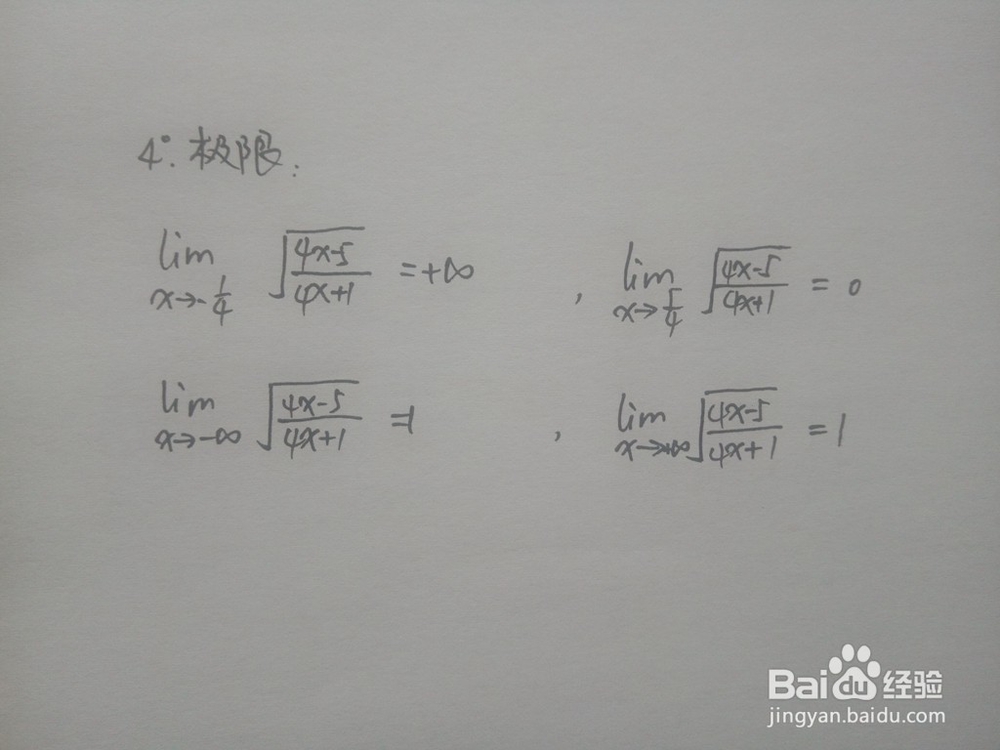 4°. 极限:
lim x→-1/4 √((4x-5)/(4x+1)) =+∞ , lim x→5/4 √((4x-5)/(4x+1)) = 0
lim x→-∞ √((4x-5)/(4x+1)) =1 , lim x→+∞ √((4x-5)/(4x+1)) =1
Baidu经验
jingyan.baidu.com